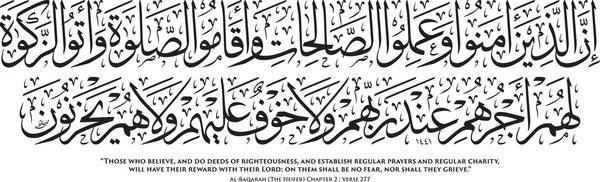 إِنَّ الَّذِينَ آمَنُوا وَعَمِلُوا الصَّالِحَاتِ وَأَقَامُوا الصَّلَوٰةَ وَآتَوُا الزَّكَوٰةَ
لَهُمْ أَجْرُهُمْ عِنْدَ رَبِّهِمْ وَلَا خَوْفٌ عَلَيْهِمْ وَلَا هُمْ يَحْزَنُونَ ١٤٤١
“Those who believe, and do deeds of righteousness, and establish regular prayers and regular charity,
will have their reward with their Lord: on them shall be no fear, nor shall they grieve.”
Al-Baqarah (The Heifer) Chapter 2 : Verse 277